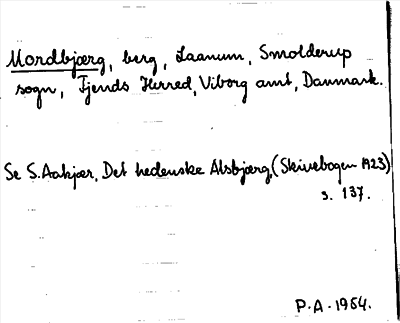 Mordbjærg, berg, Laanum, Smolderup
sogn, Fjends Herred, Viborg amt, Danmark.
Se S. Aakjær, Det hedenske Alsbjærg, (Skivebogen 1923)
s. 137.
P.A. 1964.